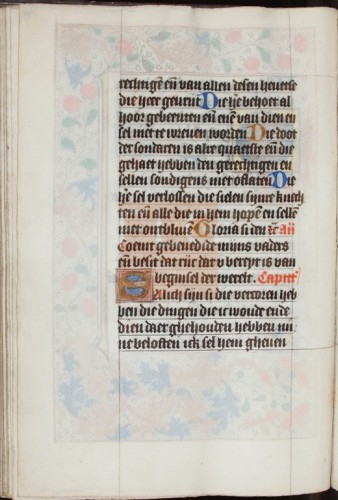 rechtingē eñ van allen desen heuerse
die heer geurijt Die hē behoet al
hoor gebeenten eñ enē van dien en
sel niet te wreuen worden Die doot
der sondaren is alre quaetste eñ die
gehaet hebben den gerechtingen en
sellen sondigens niet oflaten Die
hē sel verlossen die sielen sijnre knech
ten eñ alle die in hem hopē en sellē
niet ontbliuē Gloria si den
Coemt gebenedide mijns vaders
eñ besit dat rijc dat v bereyt is van
beginsel der werelt. Capitt
Alich sijn si die vercoren heb
ben die dingen die ic woude ende
dien daer ghehouden hebben mi
ne beloften ick sel hem gheuen